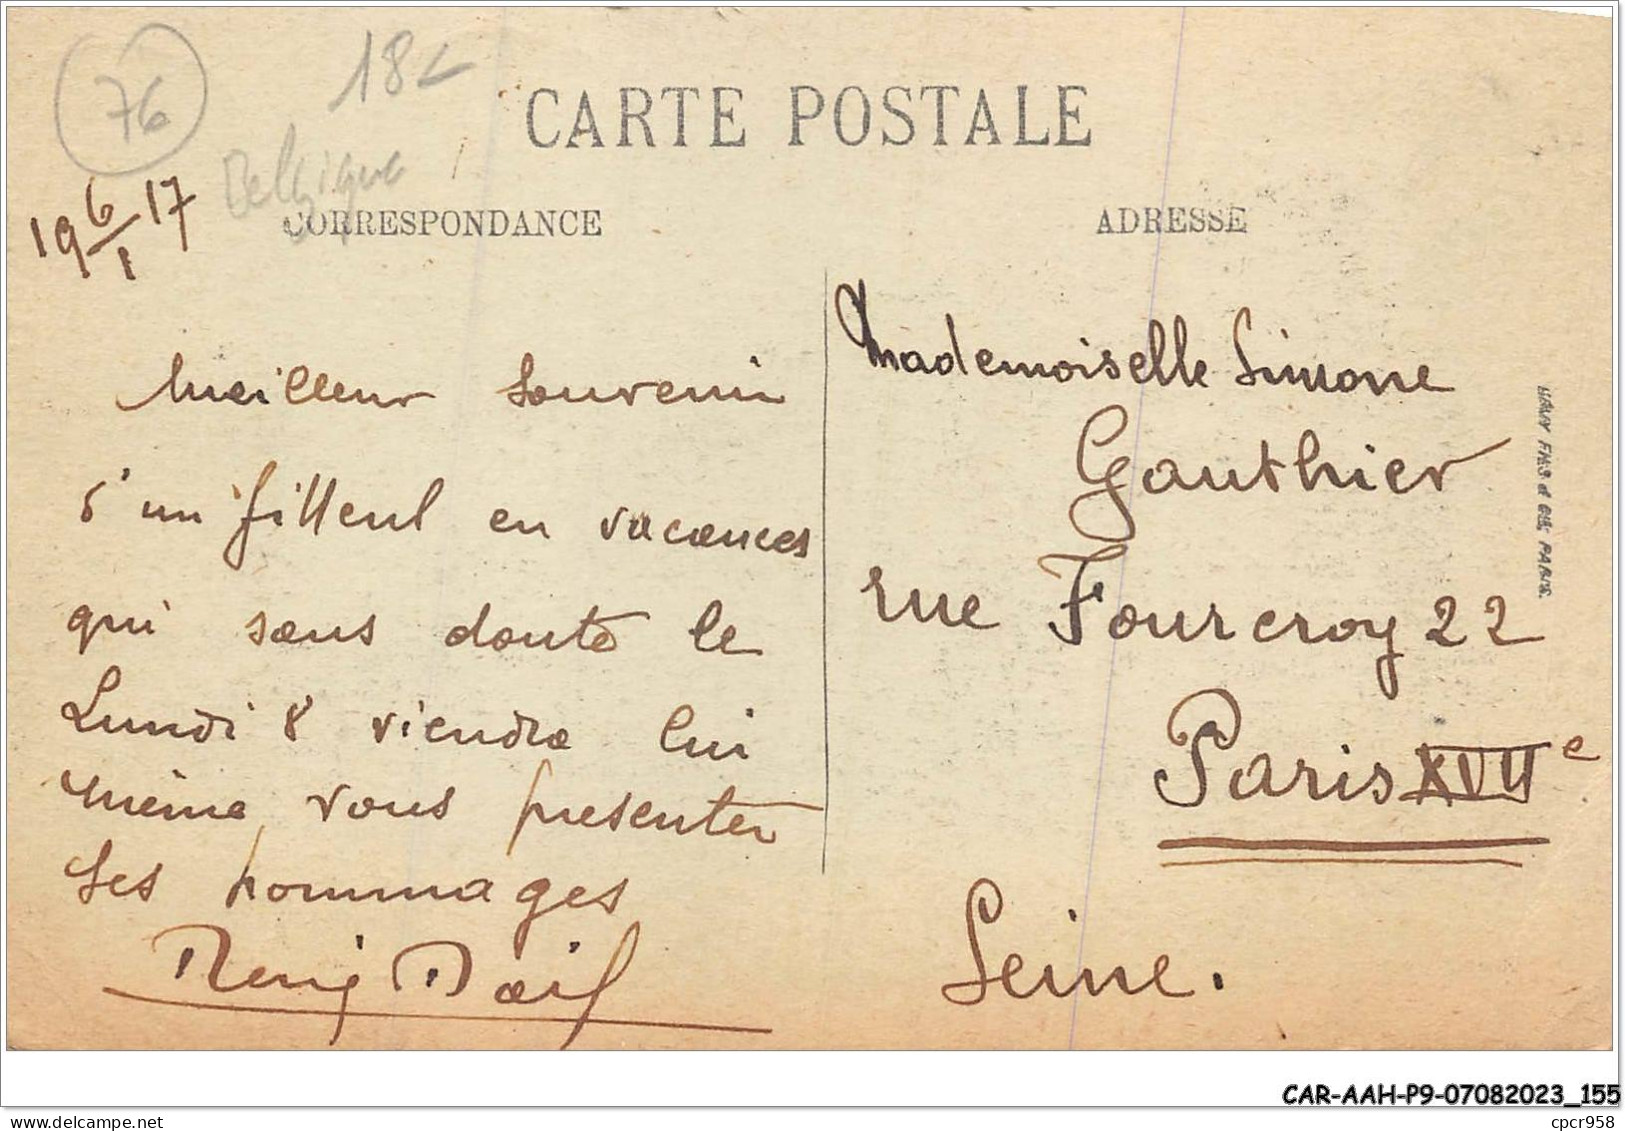 76
18
Belgique
CARTE POSTALE
CORRESPONDANCE
ADRESSE
19 6/1 17
Meilleur souvenir
d'un filleul en vacances
qui sans doute le
Lundi 8 viendra lui
même vous presenter
ses hommages
Mademoiselle Simone
Gauthier
rue Fourcroy 22
Paris XVIIe
Seine.
PARIS.
CAR-AAH-P9-07082023_155
www.delcampe.net
cpcr958